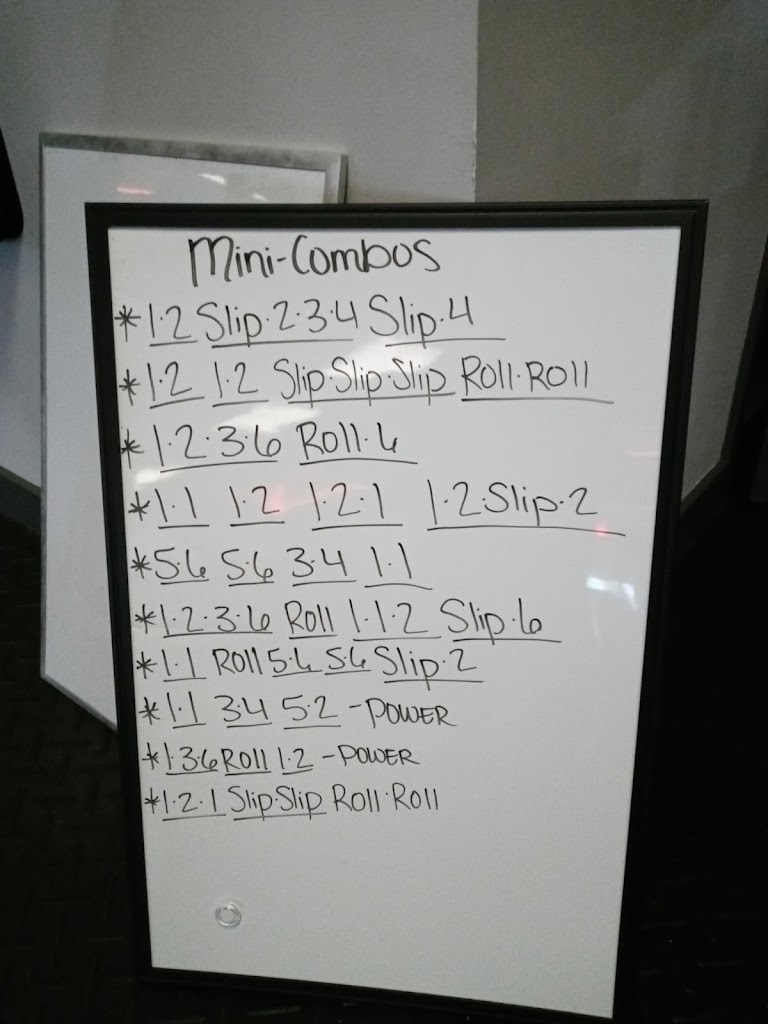 Mini-Combos
* 1·2 Slip·2·3·4 Slip·4
* 1·2 1·2 Slip·Slip·Slip Roll·Roll
* 1·2·3·6 Roll·6
* 1·1 1·2 1·2·1 1·2·Slip·2
* 5·6 5·6 3·4 1·1
* 1·2·3·6 Roll 1·1·2 Slip·6
* 1·1 Roll 5·6 5·6 Slip·2
* 1·1 3·4 5·2 -POWER
* 1·3·6 Roll 1·2 -POWER
* 1·2·1 Slip·Slip Roll·Roll